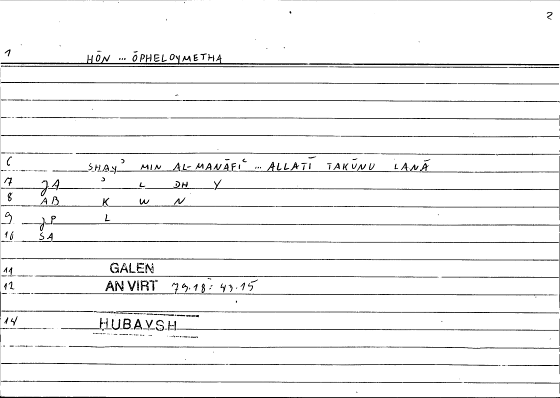 2
1 HŌN ... ŌPHELOYMETHA
6 SHAYʾ MIN AL-MANĀFIʿ ... ALLATĪ TAKŪNU LANĀ
7 JA ʾ L DH Y
8 AB K W N
9 JP L
10 SA
11 GALEN
12 AN VIRT 79.18: 43.15
14 HUBAYSH